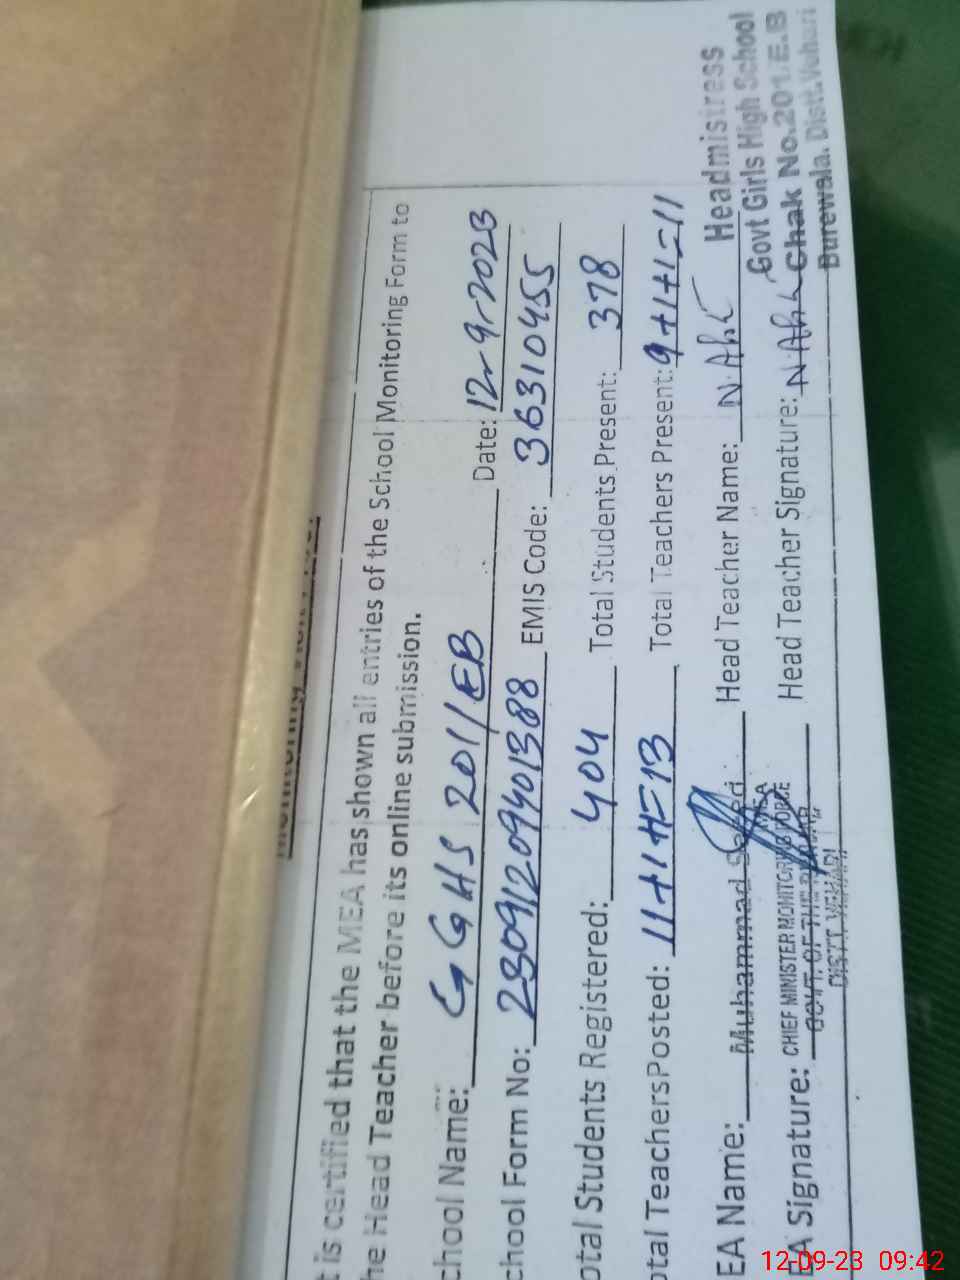 t is certified that the MEA has shown all entries of the School Monitoring Form to
he Head Teacher before its online submission.
chool Name: GGHS 201/EB Date: 12-9-2023
chool Form No: 23091209401388 EMIS Code: 36310455
otal Students Registered: 404 Total Students Present: 378
otal TeachersPosted: 11+1+1=13 Total Teachers Present: 9+1+1=11
EA Name: Muhammad Saeed Head Teacher Name: Headmistress
MEA Govt Girls High School
EA Signature: CHIEF MINISTER MONITORING FORCE Head Teacher Signature: Chak No.201/E.B
GOVT. OF THE PUNJAB Burewala. Distt. Vehari
DISTT. VEHARI
12-09-23 09:42